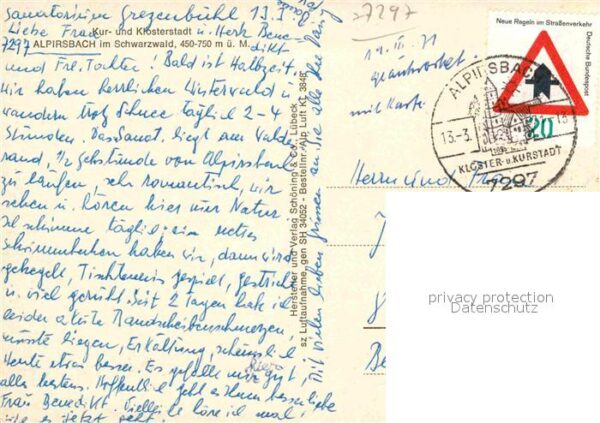 Sanatorium Grezenbühl 13.3.
Liebe Frau u. Herr Bene
Kur- und Klosterstadt
7297 ALPIRSBACH im Schwarzwald, 450-750 m ü. M.
dikt
und Frl. Tochter! Bald ist Halbzeit
wir haben herrlichen Winterwald u
wandern trotz Schnee täglich 2-4
Stunden. Das Sanat. liegt am Wald
rand, 1/2 gehstunde von Alpirsbach
zu laufen, sehr romantisch, wir
sehen u. hören hier nur Natur
Ich schwimme täglich, ein nettes
schwimmbecken haben wir, dann wird
gekegelt, Tischtennis gespielt, gestrickt
u. viel geruht. Seit 2 Tagen hab ich
leider akute Bandscheibenschmerzen,
musste liegen, Erkältung, scheusslich
Heute etwas besser. Es gefällt mir gut,
hier
alles bestens. Hoffentlich geht es Ihnen besser liebe
Frau Benedikt. Vielleicht höre ich mal,
wie es jetzt geht.
mit vielen lieben Grüssen an Sie alle
Hersteller und Verlag Schöning & Co., Lübeck
sz Luftaufnahme, gen SH 34052 - Bestellnr. Alp Luft Kf. 3848
7297
19. III. 71
geantwortet
mit Karte
Neue Regeln im Straßenverkehr
Deutsche Bundespost
20
ALPIRSBACH
13.-3.
13
KLOSTER- u KURSTADT
7297
Herrn und Frau
privacy protection
Datenschutz